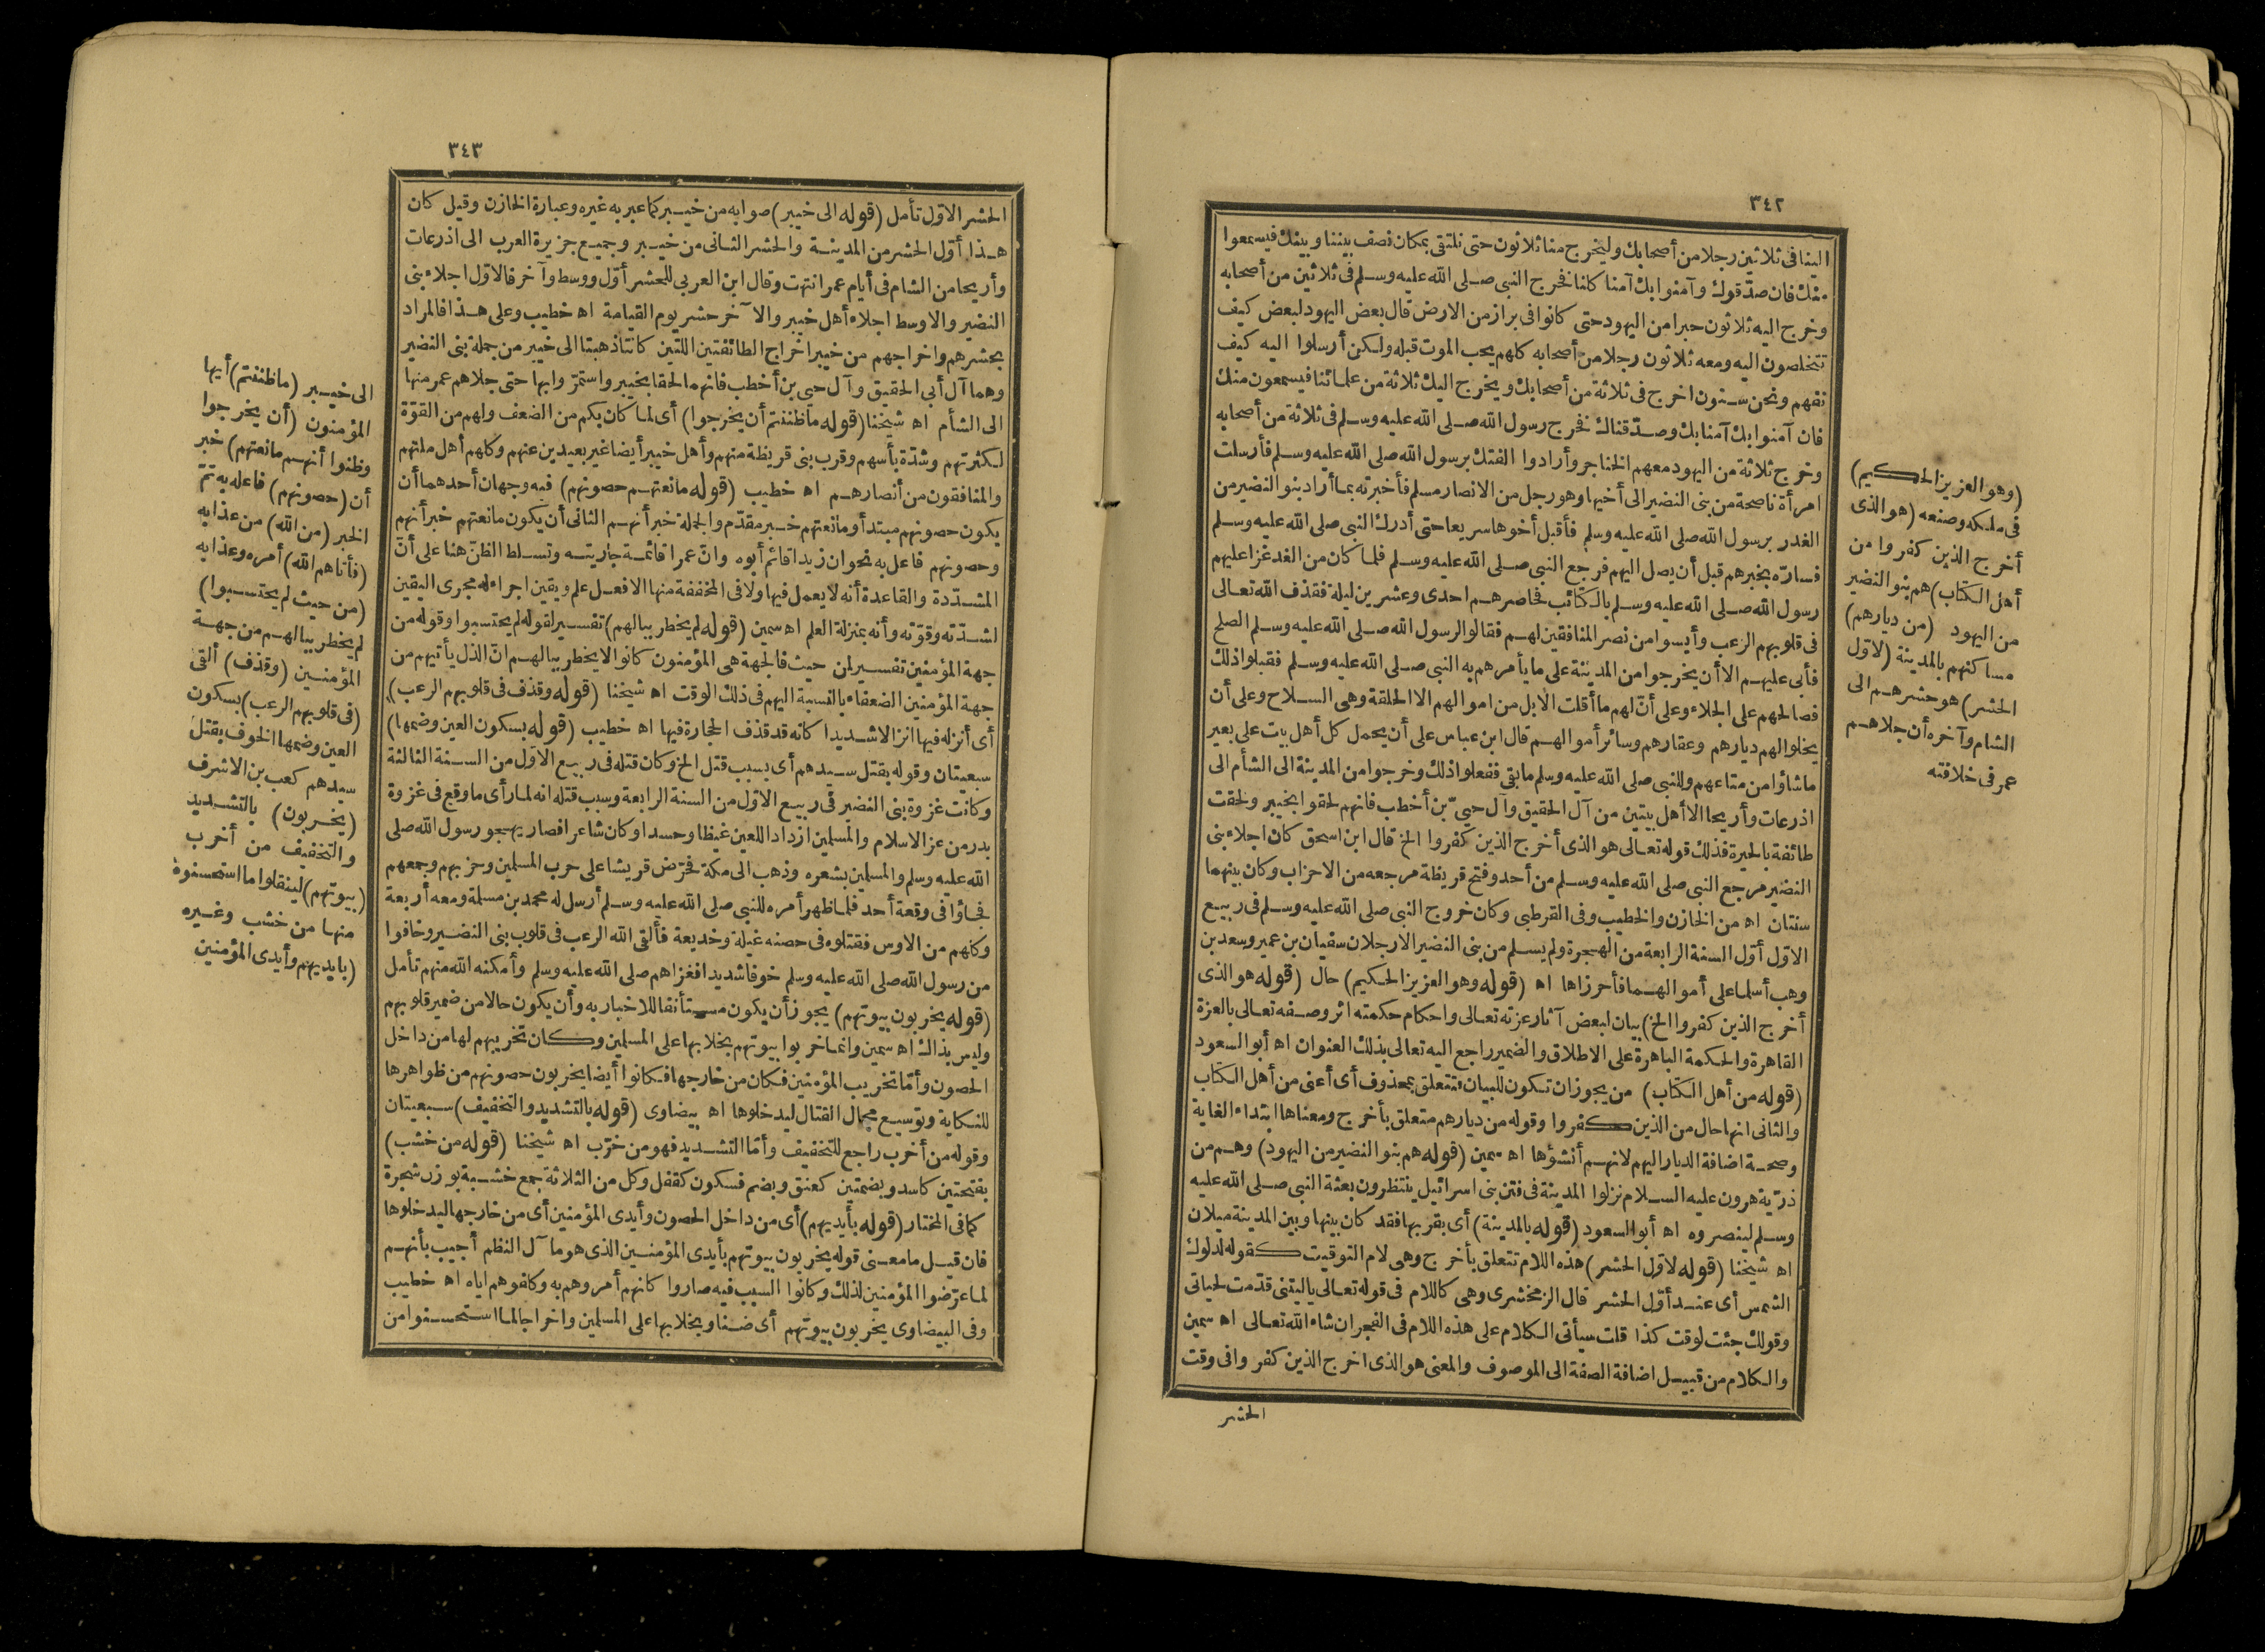 ٣٤٢
الينا فى ثلاثين رجلا من أصحابك وليخرج منا ثلاثون حتى نلتقى بمكان نصف بيننا وبينك فيسمعوا
منك فان صدّقوك وآمنوا بك آمنا كلنا فخرج النبى صلى الله عليه وسلم فى ثلاثين من أصحابه
وخرج اليه ثلاثون حبرا من اليهود حتى كانوا فى براز من الارض قال بعض اليهود لبعض كيف
تتخلصون اليه ومعه ثلاثون رجلا من أصحابه كلهم يحب الموت قبله ولكن أرسلوا اليه كيف
نفهم ونحن ستون اخرج فى ثلاثة من أصحابك ويخرج اليك ثلاثة من علمائنا فيسمعون منك
فان آمنوا بك آمنا بك وصدّقناك فخرج رسول الله صلى الله عليه وسلم فى ثلاثة من أصحابه
وخرج ثلاثة من اليهود معهم الخناجر وأرادوا الفتك برسول الله صلى الله عليه وسلم فأرسلت
امرأة ناصحة من بنى النضير الى أخيها وهو رجل من الانصار مسلم فأخبرته بما أراد بنو النضير من
الغدر برسول الله صلى الله عليه وسلم فأقبل أخوها سريعا حتى أدرك النبى صلى الله عليه وسلم
فسارّه بخبرهم قبل أن يصل اليهم فرجع النبى صلى الله عليه وسلم فلما كان من الغد غزا عليهم
رسول الله صلى الله عليه وسلم بالكتائب فحاصرهم احدى وعشرين ليلة فقذف الله تعالى
فى قلوبهم الرعب وأيسوا من نصر المنافقين لهم فقالوا لرسول الله صلى الله عليه وسلم الصلح
فأبى عليهم الا أن يخرجوا من المدينة على ما يأمرهم به النبى صلى الله عليه وسلم فقبلوا ذلك
فصالحهم على الجلاء وعلى أنّ لهم ما أقلت الابل من اموالهم الا الحلقة وهى السلاح وعلى أن
يخلوا لهم ديارهم وعقارهم وسائر أموالهم قال ابن عباس على أن يحمل كل أهل بيت على بعير
ماشاؤا من متاعهم وللنبى صلى الله عليه وسلم ما بقى ففعلوا ذلك وخرجوا من المدينة الى الشأم الى
اذرعات وأريحا الا أهل بيتين من آل الحقيق وآل حيىّ بن أخطب فانهم لحقوا بخيبر ولحقت
طائفة بالحيرة فذلك قوله تعالى هو الذى أخرج الذين كفروا الخ قال ابن اسحق كان اجلاء بنى
النضير مرجع النبى صلى الله عليه وسلم من أحد وفتح قريظة مرجعه من الاحزاب وكان بينهما
سنتان اه من الخازن والخطيب وفى القرطبى وكان خروج النبى صلى الله عليه وسلم فى ربيع
الاوّل أوّل السنة الرابعة من الهجرة ولم يسلم من بنى النضير الا رجلان سفيان بن عمير وسعد بن
وهب أسلما على أموالهما فأحرزاها اه (قوله وهو العزيز الحكيم) حال (قوله هو الذى
أخرج الذين كفروا الخ) بيان لبعض آثار عزته تعالى واحكام حكمته اثر وصفه تعالى بالعزة
القاهرة والحكمة الباهرة على الاطلاق والضمير راجع اليه تعالى بذلك العنوان اه أبو السعود
(قوله من أهل الكتاب) من يجوز ان تكون للبيان فتتعلق بمحذوف أى أعنى من أهل الكتاب
والثانى انها حال من الذين كفروا وقوله من ديارهم متعلق بأخرج ومعناها ابتداء الغاية
وصحة اضافة الديار اليهم لانهم أنشؤها اه سمين (قوله هم بنو النضير من اليهود) وهم من
ذرّية هرون عليه السلام نزلوا المدينة فى فتن بنى اسرائيل ينتظرون بعثة النبى صلى الله عليه
وسلم لينصروه اه أبو السعود (قوله بالمدينة) أى بقربها فقد كان بينها وبين المدينة ميلان
اه شيخنا (قوله لاوّل الحشر) هذه اللام تتعلق بأخرج وهى لام التوقيت كقوله لدلوك
الشمس أى عند أوّل الحشر قال الزمخشرى وهى كاللام فى قوله تعالى يا ليتنى قدّمت لحياتى
وقولك جئت لوقت كذا قلت سيأتى الكلام على هذه اللام فى الفجر ان شاء الله تعالى اه سمين
والكلام من قبيل اضافة الصفة الى الموصوف والمعنى هو الذى اخرج الذين كفروا فى وقت
الحشر
(وهو العزيز الحكيم)
فى ملكه وصنعه (هو الذى
أخرج الذين كفروا من
أهل الكتاب) هم بنو النضير
من اليهود (من ديارهم)
مساكنهم بالمدينة (لاوّل
الحشر) هو حشرهم الى
الشام وآخره أن جلاهم
عمر فى خلافته
٣٤٣
الحشر الاوّل تأمل (قوله الى خيبر) صوابه من خيبر كما عبر به غيره وعبارة الخازن وقيل كان
هذا أوّل الحشر من المدينة والحشر الثانى من خيبر وجميع جزيرة العرب الى اذرعات
وأريحا من الشام فى أيام عمر انتهت وقال ابن العربى للحشر أوّل ووسط وآخر فالاوّل اجلاء بنى
النضير والاوسط اجلاء أهل خيبر والآخر حشر يوم القيامة اه خطيب وعلى هذا فالمراد
بحشرهم واخراجهم من خيبر اخراج الطائفتين اللتين كانتا ذهبتا الى خيبر من جملة بنى النضير
وهما آل أبى الحقيق وآل حيى بن أخطب فانهما لحقا بخيبر واستمرّوا بها حتى جلاهم عمر منها
الى الشأم اه شيخنا (قوله ما ظننتم أن يخرجوا) أى لما كان بكم من الضعف ولهم من القوّة
لكثرتهم وشدّة بأسهم وقرب بنى قريظة منهم وأهل خيبر أيضا غير بعيدين عنهم وكلهم أهل ملتهم
والمنافقون من أنصارهم اه خطيب (قوله مانعتهم حصونهم) فيه وجهان أحدهما أن
يكون حصونهم مبتدأ ومانعتهم خبر مقدّم والجملة خبر أنهم الثانى أن يكون مانعتهم خبر أنهم
وحصونهم فاعل به نحو ان زيدا قائم أبوه وانّ عمرا قائمة جاريته وتسلط الظنّ هنا على أنّ
المشدّدة والقاعدة أنه لا يعمل فيها ولا فى المخففة منها الا فعل علم ويقين اجراء له مجرى اليقين
لشدّته وقوّته وأنه بمنزلة العلم اه سمين (قوله لم يخطر ببالهم) تفسير لقوله لم يحتسبوا وقوله من
جهة المؤمنين تفسير لمن حيث فالجهة هى المؤمنون كانوا لا يخطر ببالهم انّ الذل يأتيهم من
جهة المؤمنين الضعفاء بالنسبة اليهم فى ذلك الوقت اه شيخنا (قوله وقذف فى قلوبهم الرعب)
أى أنزله فيها انزالا شديدا كانه قد قذف الحجارة فيها اه خطيب (قوله بسكون العين وضمها)
سبعيتان وقوله بقتل سيدهم أى بسبب قتل الخ وكان قتله فى ربيع الاوّل من السنة الثالثة
وكانت غزوة بنى النضير فى ربيع الاوّل من السنة الرابعة وسبب قتله انه لما رأى ما وقع فى غزوة
بدر من عز الاسلام والمسلمين ازداد اللعين غيظا وحسدا وكان شاعرا فصار يهجو رسول الله صلى
الله عليه وسلم والمسلمين بشعره وذهب الى مكة فحرّض قريشا على حرب المسلمين وحزبهم وجمعهم
فجاؤا فى وقعة أحد فلما ظهر أمره للنبى صلى الله عليه وسلم أرسل له محمد بن مسلمة ومعه أربعة
وكلهم من الاوس فقتلوه فى حصنه غيلة وخديعة فألقى الله الرعب فى قلوب بنى النضير وخافوا
من رسول الله صلى الله عليه وسلم خوفا شديدا فغزاهم صلى الله عليه وسلم وأمكنه الله منهم تأمل
(قوله يخربون بيوتهم) يجوز أن يكون مستأنفا للاخبار به وأن يكون حالا من ضمير قلوبهم
وليس بذاك اه سمين وانما خربوا بيوتهم بخلا بها على المسلمين وكان تخريبهم لها من داخل
الحصون وأمّا تخريب المؤمنين فكان من خارجها فكانوا أيضا يخربون حصونهم من ظواهرها
للنكاية وتوسيع مجال القتال ليدخلوها اه بيضاوى (قوله بالتشديد والتخفيف) سبعيتان
وقوله من أخرب راجع للتخفيف وأمّا التشديد فهو من خرّب اه شيخنا (قوله من خشب)
بفتحتين كاسد وبضمتين كعنق وبضم فسكون كقفل وكل من الثلاثة جمع خشبة بوزن شجرة
كما فى المختار (قوله بأيديهم) أى من داخل الحصون وأيدى المؤمنين أى من خارجها ليدخلوها
فان قيل ما معنى قوله يخربون بيوتهم بأيدى المؤمنين الذى هو مآل النظم أجيب بأنهم
لما عرّضوا المؤمنين لذلك وكانوا السبب فيه صاروا كانهم أمروهم به وكلفوهم اياه اه خطيب
وفى البيضاوى يخربون بيوتهم أى ضنا وبخلا بها على المسلمين واخراجا لما استحسنوا من
الى خيبر (ما ظننتم) أيها
المؤمنون (أن يخرجوا
وظنوا أنهم مانعتهم) خبر
أن (حصونهم) فاعله به تمّ
الخبر (من الله) من عذابه
(فأتاهم الله) أمره وعذابه
(من حيث لم يحتسبوا)
لم يخطر ببالهم من جهة
المؤمنين (وقذف) ألقى
(فى قلوبهم الرعب) بسكون
العين وضمها الخوف بقتل
سيدهم كعب بن الاشرف
(يخربون) بالتشديد
والتخفيف من أخرب
(بيوتهم) لينقلوا ما استحسنوه
منها من خشب وغيره
(بايديهم وأيدى المؤمنين